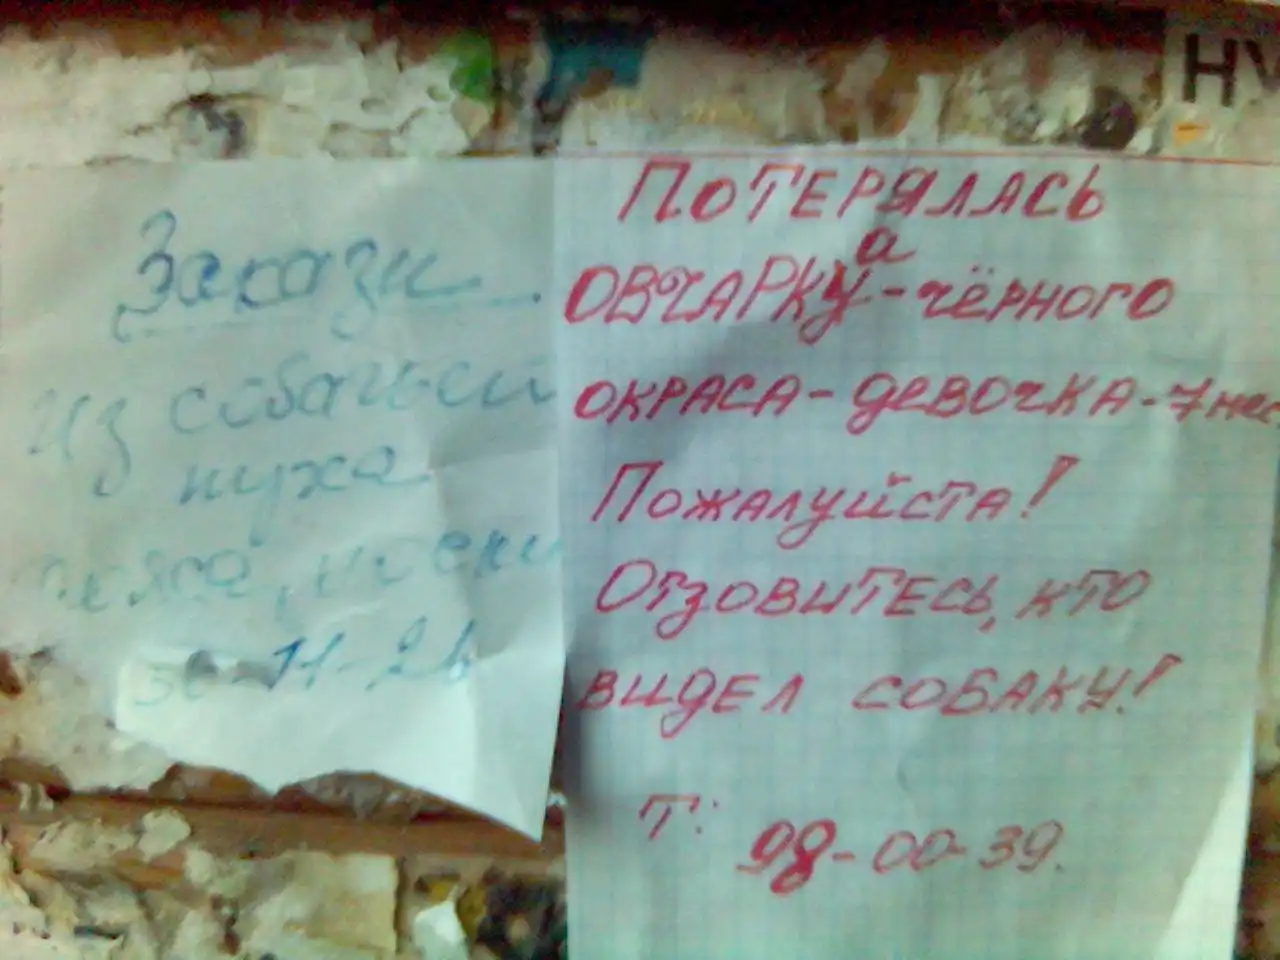 Закази
из собачьей
пуха
пояса, носки
-11-26
ПОТЕРЯЛАСЬ
а
ОВЧАРКУ-чёрного
окраса-девочка-7мес
Пожалуйста!
Отзовитесь, кто
видел собаку!
Т: 98-00-39.
НУ